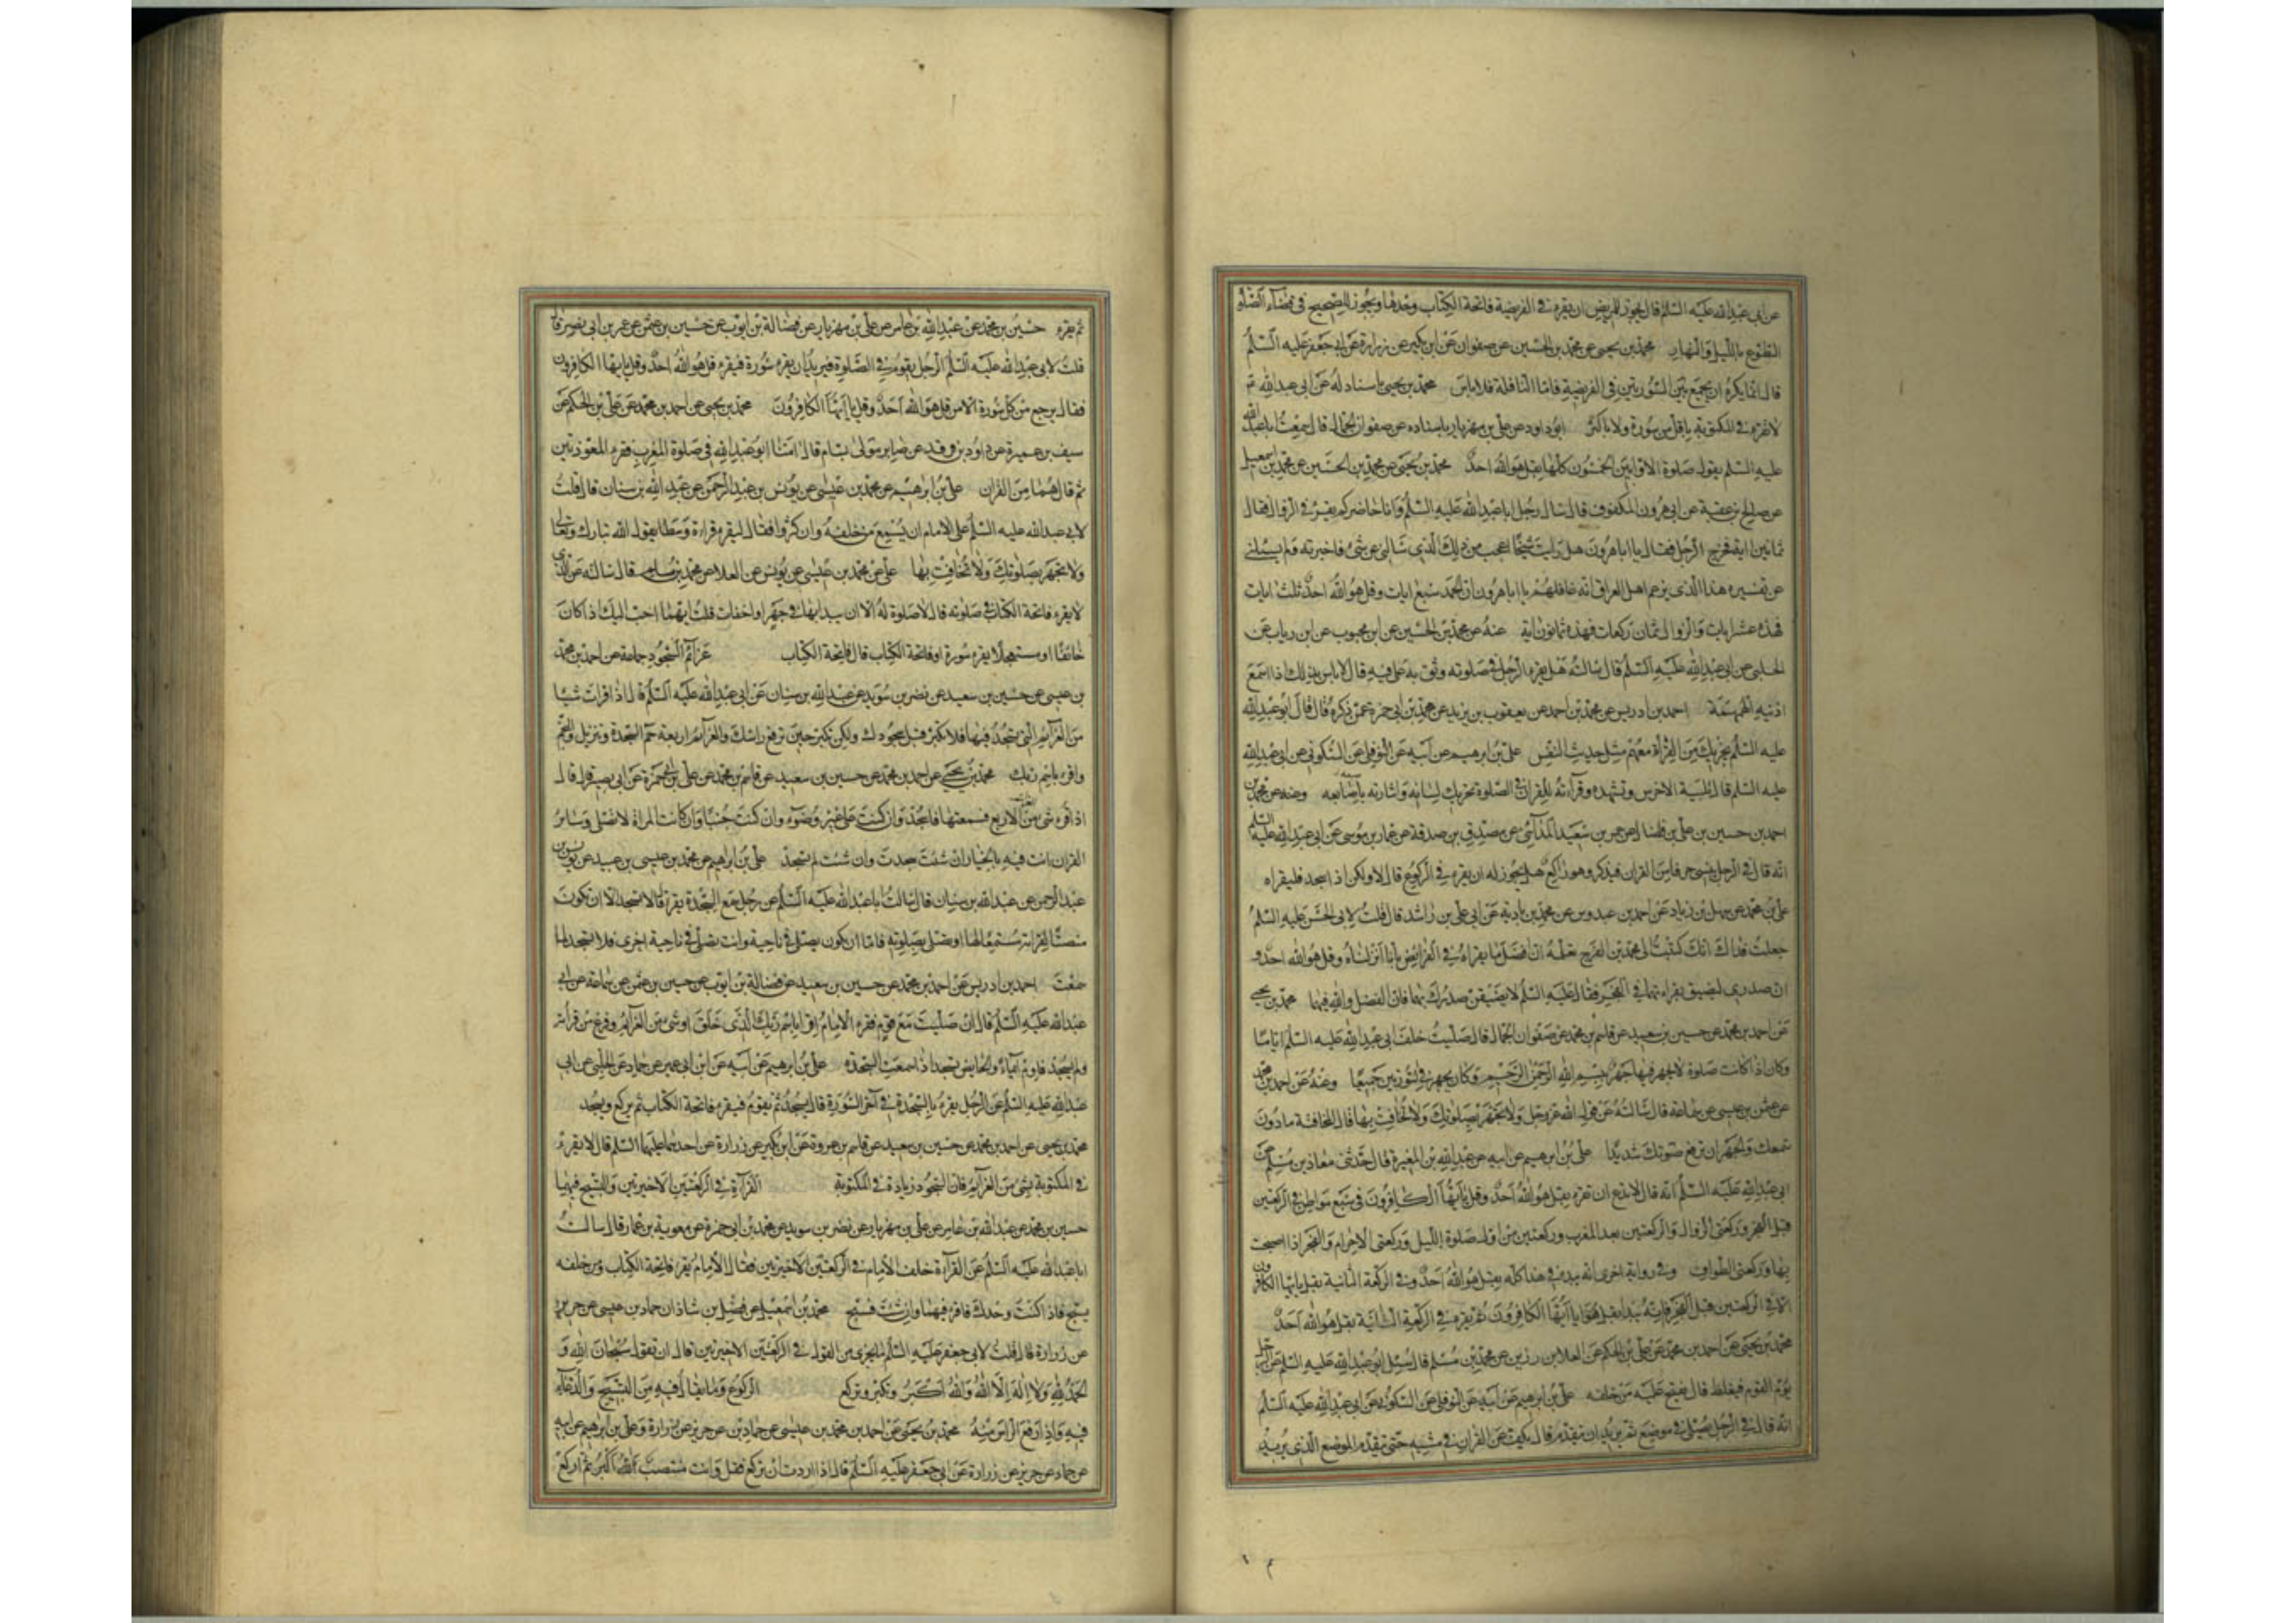 عن ابى عبدالله عليه السلم قال يجوز للمريض ان يقرء فى الفريضة فاتحة الكتاب وحدها ويجوز للصحيح فى قضاء الصلوة
التطوع بالليل والنهار محمد بن يحيى عن محمد بن الحسين عن صفوان عن ابن بكير عن زرارة عن ابى جعفر عليه السلم
قال انما يكره ان يجمع بين السورتين فى الفريضة فاما النافلة فلا باس محمد بن يحيى باسناد له عن ابى عبدالله ع
لا تقرء فى المكتوبة باقل من سورة ولا باكثر ابو داود عن على بن مهزيار باسناده عن صفوان الجمال قال سمعت ابا عبدالله
عليه السلم يقول صلوة الاوابين الخمسون كلها بقل هو الله احد محمد بن يحيى عن محمد بن الحسين عن محمد بن اسمعيل
عن صالح بن عقبة عن ابى هرون المكفوف قال سال رجل ابا عبدالله عليه السلم وانا حاضر كم يقرء فى الزوال فقال
ثمانين اية فخرج الرجل فقال يا ابا هرون هل رايت شيخا اعجب من ذلك الذى سالنى عن شىء فاخبرته فلم يسئلنى
عن تفسيره هذا الذى يزعم اهل العراق انه عاقلهم يا ابا هرون ان الحمد سبع ايات وقل هو الله احد ثلث ايات
فهذه عشر ايات والزوال ثمان ركعات فهذه ثمانون اية عنه عن محمد بن الحسين عن ابن محبوب عن ابن رياب عن
الحلبى عن ابى عبدالله عليه السلم قال سالته هل يقرء الرجل فى صلوته وثوبه على فيه قال لا باس بذلك اذا اسمع
اذنيه الهمهمة احمد بن ادريس عن محمد بن احمد عن يعقوب بن يزيد عن محمد بن ابى حمزة عمن ذكره قال قال ابو عبدالله
عليه السلم يجزيك من القرأة معهم مثل حديث النفس على بن ابرهيم عن ابيه عن النوفلى عن السكونى عن ابى عبدالله
عليه السلم قال تلبية الاخرس وتشهده وقرآءته للقران فى الصلوة تحريك لسانه واشارته باصابعه وعنه عن محمد بن
احمد بن حسين بن على بن فضال عن عمر بن سعيد المدائنى عن مصدق بن صدقة عن عمار بن موسى عن ابى عبدالله عليه السلم
انه قال فى الرجل ينسى حرفا من القران فيذكر وهو راكع هل يجوز له ان يقرء فى الركوع قال لا ولكن اذا سجد فليقراه
على بن محمد عن سهل بن زياد عن احمد بن عبدوس عن محمد بن زادية عن ابى على بن راشد قال قلت لابى الحسن عليه السلم
جعلت فداك انك كتبت الى محمد بن الفرج تعلمه ان افضل ما يقراء فى الفرائض بانا انزلناه وقل هو الله احد و
ان صدرى ليضيق بقراءتهما فى الفجر فقال عليه السلم لا يضيقن صدرك بهما فان الفضل والله فيهما محمد بن يحيى
عن احمد بن محمد عن حسين بن سعيد عن قاسم بن محمد عن صفوان الجمال قال صليت خلف ابى عبدالله عليه السلم اياما
وكان اذا كانت صلوة لا يجهر فيها جهر ببسم الله الرحمن الرحيم وكان يجهر فى السورتين جميعا وعنه عن احمد بن محمد
عن عثمن بن عيسى عن سماعة قال سالته عن قول الله عز وجل ولا تجهر بصلوتك ولا تخافت بها قال المخافتة مادون
سمعك والجهر ان ترفع صوتك شديدا على بن ابرهيم عن ابيه عن عبدالله بن المغيرة قال حدثنى معاذ بن مسلم عن
ابى عبدالله عليه السلم انه قال لا تدع ان تقرء بقل هو الله احد وقل يا ايها الكافرون فى سبع مواطن فى الركعتين
قبل الفجر وركعتى الزوال والركعتين بعد المغرب وركعتين من اول صلوة الليل وركعتى الاحرام والفجر اذا اصبحت
بها وركعتى الطواف وفى رواية اخرى انه يبدء فى هذا كله بقل هو الله احد وفى الركعة الثانية بقل يا ايها الكافرون
الا فى الركعتين قبل الفجر فانه يبدا بقل يا ايها الكافرون ثم يقرء فى الركعة الثانية بقل هو الله احد
محمد بن يحيى عن احمد بن محمد عن على بن الحكم عن العلا بن رزين عن محمد بن مسلم قال سئل ابو عبدالله عليه السلم عن الرجل
يؤم القوم فيغلط قال يفتح عليه من خلفه على بن ابرهيم عن ابيه عن النوفلى عن السكونى عن ابى عبدالله عليه السلم
انه قال فى الرجل يصلى فى موضع ثم يريد ان يتقدم قال يكف عن القران فى مشيه حتى يتقدم الموضع الذى يريد
ثم يقرء حسين بن محمد عن عبدالله بن عامر عن على بن مهزيار عن فضالة بن ايوب عن حسين بن عثمن عن عمر بن ابى نصر قال
قلت لابى عبدالله عليه السلم الرجل يقوم فى الصلوة فيريد ان يقرء سورة فيقرء قل هو الله احد وقل يا ايها الكافرون
فقال يرجع من كل سورة الا من قل هو الله احد وقل يا ايها الكافرون محمد بن يحيى عن احمد بن محمد عن على بن الحكم عن
سيف بن عميرة عن داود بن فرقد عن صابر مولى بسام قال امنا ابو عبدالله فى صلوة المغرب فقرء المعوذتين
ثم قال هما من القران على بن ابرهيم عن محمد بن عيسى عن يونس بن عبدالرحمن عن عبدالله بن سنان قال قلت
لابى عبدالله عليه السلم على الامام ان يسمع من خلفه وان كثروا فقال ليقرء قراءة وسطا يقول الله تبارك وتعالى
ولا تجهر بصلوتك ولا تخافت بها على عن محمد بن عيسى عن يونس عن العلا عن محمد بن مسلم قال سالته عن الذى
لا يقرء فاتحة الكتاب فى صلوته قال لا صلوة له الا ان يبدا بها فى جهر او اخفات قلت ايهما احب اليك اذا كان
خائفا او مستعجلا يقرء سورة او فاتحة الكتاب قال فاتحة الكتاب عزائم السجود جماعة عن احمد بن محمد
بن عيسى عن حسين بن سعيد عن نضر بن سويد عن عبدالله بن سنان عن ابى عبدالله عليه السلم قال اذا قرات شيئا
من العزائم التى يسجد فيها فلا تكبر قبل سجودك ولكن تكبر حين ترفع راسك والعزائم اربعة حم السجدة وتنزيل والنجم
واقرء باسم ربك محمد بن يحيى عن احمد بن محمد عن حسين بن سعيد عن قاسم بن محمد عن على بن ابى حمزة عن ابى بصير قال قال
اذا قرء شىء من العزائم الاربع فسمعتها فاسجد وان كنت على غير وضوء وان كنت جنبا وان كانت المراة لا تصلى وسائر
القران انت فيه بالخيار ان شئت سجدت وان شئت لم تسجد على بن ابراهيم عن محمد بن عيسى بن عبيد عن يونس بن
عبدالرحمن عن عبدالله بن سنان قال سالت ابا عبدالله عليه السلم عن رجل سمع السجدة يقرء قال لا تسجد الا ان تكون
منصتا لقرائته مستمعا لها او تصلى بصلوته فاما ان يكون يصلى فى ناحية وانت تصلى فى ناحية اخرى فلا تسجد لما
سمعت احمد بن ادريس عن احمد بن محمد عن حسين بن سعيد عن فضالة بن ايوب عن حسين بن عثمن عن سماعة عن ابى
عبدالله عليه السلم قال ان صليت مع قوم فقرء الامام اقرء باسم ربك الذى خلق او شىء من العزائم وفرغ من قرائته
ولم يسجد فاوم ايماء والحايض تسجد اذا سمعت السجدة على بن ابرهيم عن ابيه عن ابن ابى عمير عن حماد عن الحلبى عن ابى
عبدالله عليه السلم عن الرجل يقرء بالسجدة فى آخر السورة قال يسجد ثم يقوم فيقرء فاتحة الكتاب ثم يركع ويسجد
محمد بن يحيى عن احمد بن محمد عن حسين بن سعيد عن قاسم بن عروة عن ابن بكير عن زرارة عن احدهما عليهما السلم قال لا تقرء
فى المكتوبة بشىء من العزائم فان السجود زيادة فى المكتوبة القرآءة فى الركعتين الاخيرتين والتسبيح فيهما
حسين بن محمد عن عبدالله بن عامر عن على بن مهزيار عن نضر بن سويد عن محمد بن ابى حمزة عن معوية بن عمار قال سالت
ابا عبدالله عليه السلم عن القرآءة خلف الامام فى الركعتين الاخيرتين فقال الامام يقرء فاتحة الكتاب ومن خلفه
يسبح فاذا كنت وحدك فاقرء فيهما وان شئت فسبح محمد بن اسمعيل عن فضل بن شاذان حماد بن عيسى عن حريز
عن زرارة قال قلت لابى جعفر عليه السلم ما يجزى من القول فى الركعتين الاخيرتين قال ان تقول سبحان الله و
الحمد لله ولا اله الا الله والله اكبر وتكبر وتركع الركوع وما يقال فيه من التسبيح والدعاء
فيه واذا رفع الراس منه محمد بن يحيى عن احمد بن محمد بن عيسى عن حماد بن عن حريز عن زرارة وعلى بن ابرهيم عن ابيه
عن حماد عن حريز عن زرارة عن ابى جعفر عليه السلم قال اذا اردت ان تركع فقل وانت منتصب الله اكبر ثم اركع